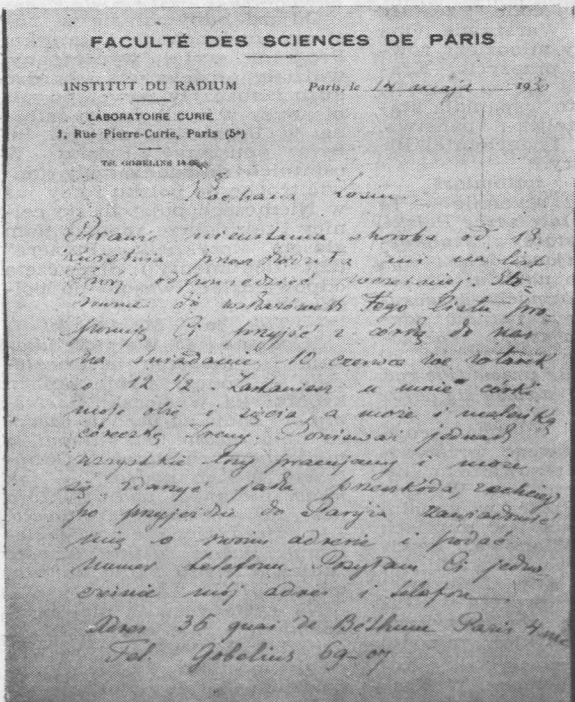 FACULTÉ DES SCIENCES DE PARIS
INSTITUT DU RADIUM
Paris, le 14 maja 1930
LABORATOIRE CURIE
1, Rue Pierre-Curie, Paris (5e)
TÉL. GOBELINS
Kochana
Prawie nieustanna choroba od 18
kwietnia przeszkodziła mi na list
Twój odpowiedzieć wcześniej. Sto-
sownie do wskazówek Tego listu pro-
ponuję Ci przyjść z córką do nas
na śniadanie 10 czerwca we wtorek
o 12 1/2. Zastaniesz u mnie córki
moje obie i zięcia a może i maleńką
córeczkę Ireny. Ponieważ jednak
wszystkie trzy pracujemy i może
się zdarzyć jaka przeszkoda, zechciej
po przyjeździe do Paryża zawiadomić
mię o swoim adresie i podać
numer telefonu. Przysyłam Ci jedno-
cześnie mój adres i telefon
Adres 36 quai de Béthune Paris 4
Tel. Gobelins 69-07